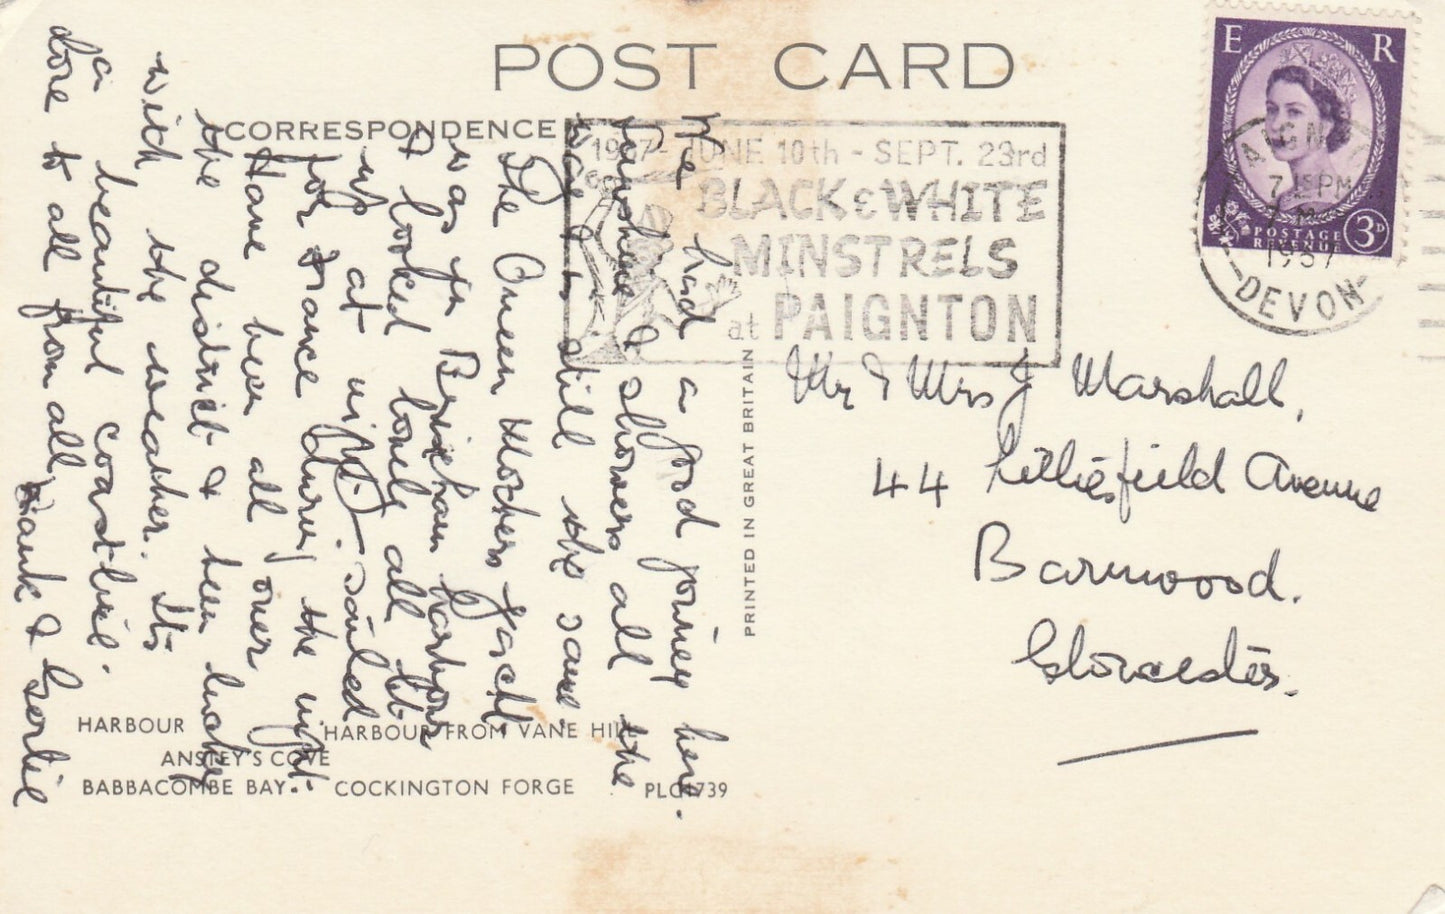 POST CARD
CORRESPONDENCE
E R
POSTAGE
REVENUE
3D
7 15 PM
1967
DEVON
1967 - JUNE 10th - SEPT. 23rd
BLACK & WHITE
MINSTRELS
at PAIGNTON
We had a good journey here.
Sunshine & showers all the
way & its still the same.
The Queen Mothers yacht
was in Brixham harbour
& looked lovely all lit
up at night. Sailed
for France during the night.
Have been all over
the district & been lucky
with the weather. Its
a beautiful coastline.
love to all from all,
Hank & Gertie
Mr & Mrs J Marshall,
44 Avenue
Barnwood.
Gloucester.
PRINTED IN GREAT BRITAIN
HARBOUR HARBOUR FROM VANE HILL
ANSTEY'S COVE
BABBACOMBE BAY. COCKINGTON FORGE PLC4739